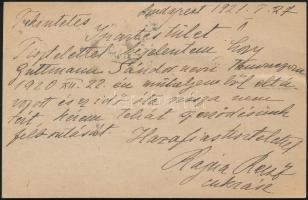 Budapest 1921. I. 27
Tekintetes
Iparostestület
Tisztelettel jelentem hogy
Guttmann Sándor nevű tanoncom
1920 XII. 22 én műhelyemből eltá-
vozott és ez idő óta vissza nem
tért kérem tehát szerződésünk
felbontását.
Hazafias tisztelettel
Rajna Rezső
cukrász